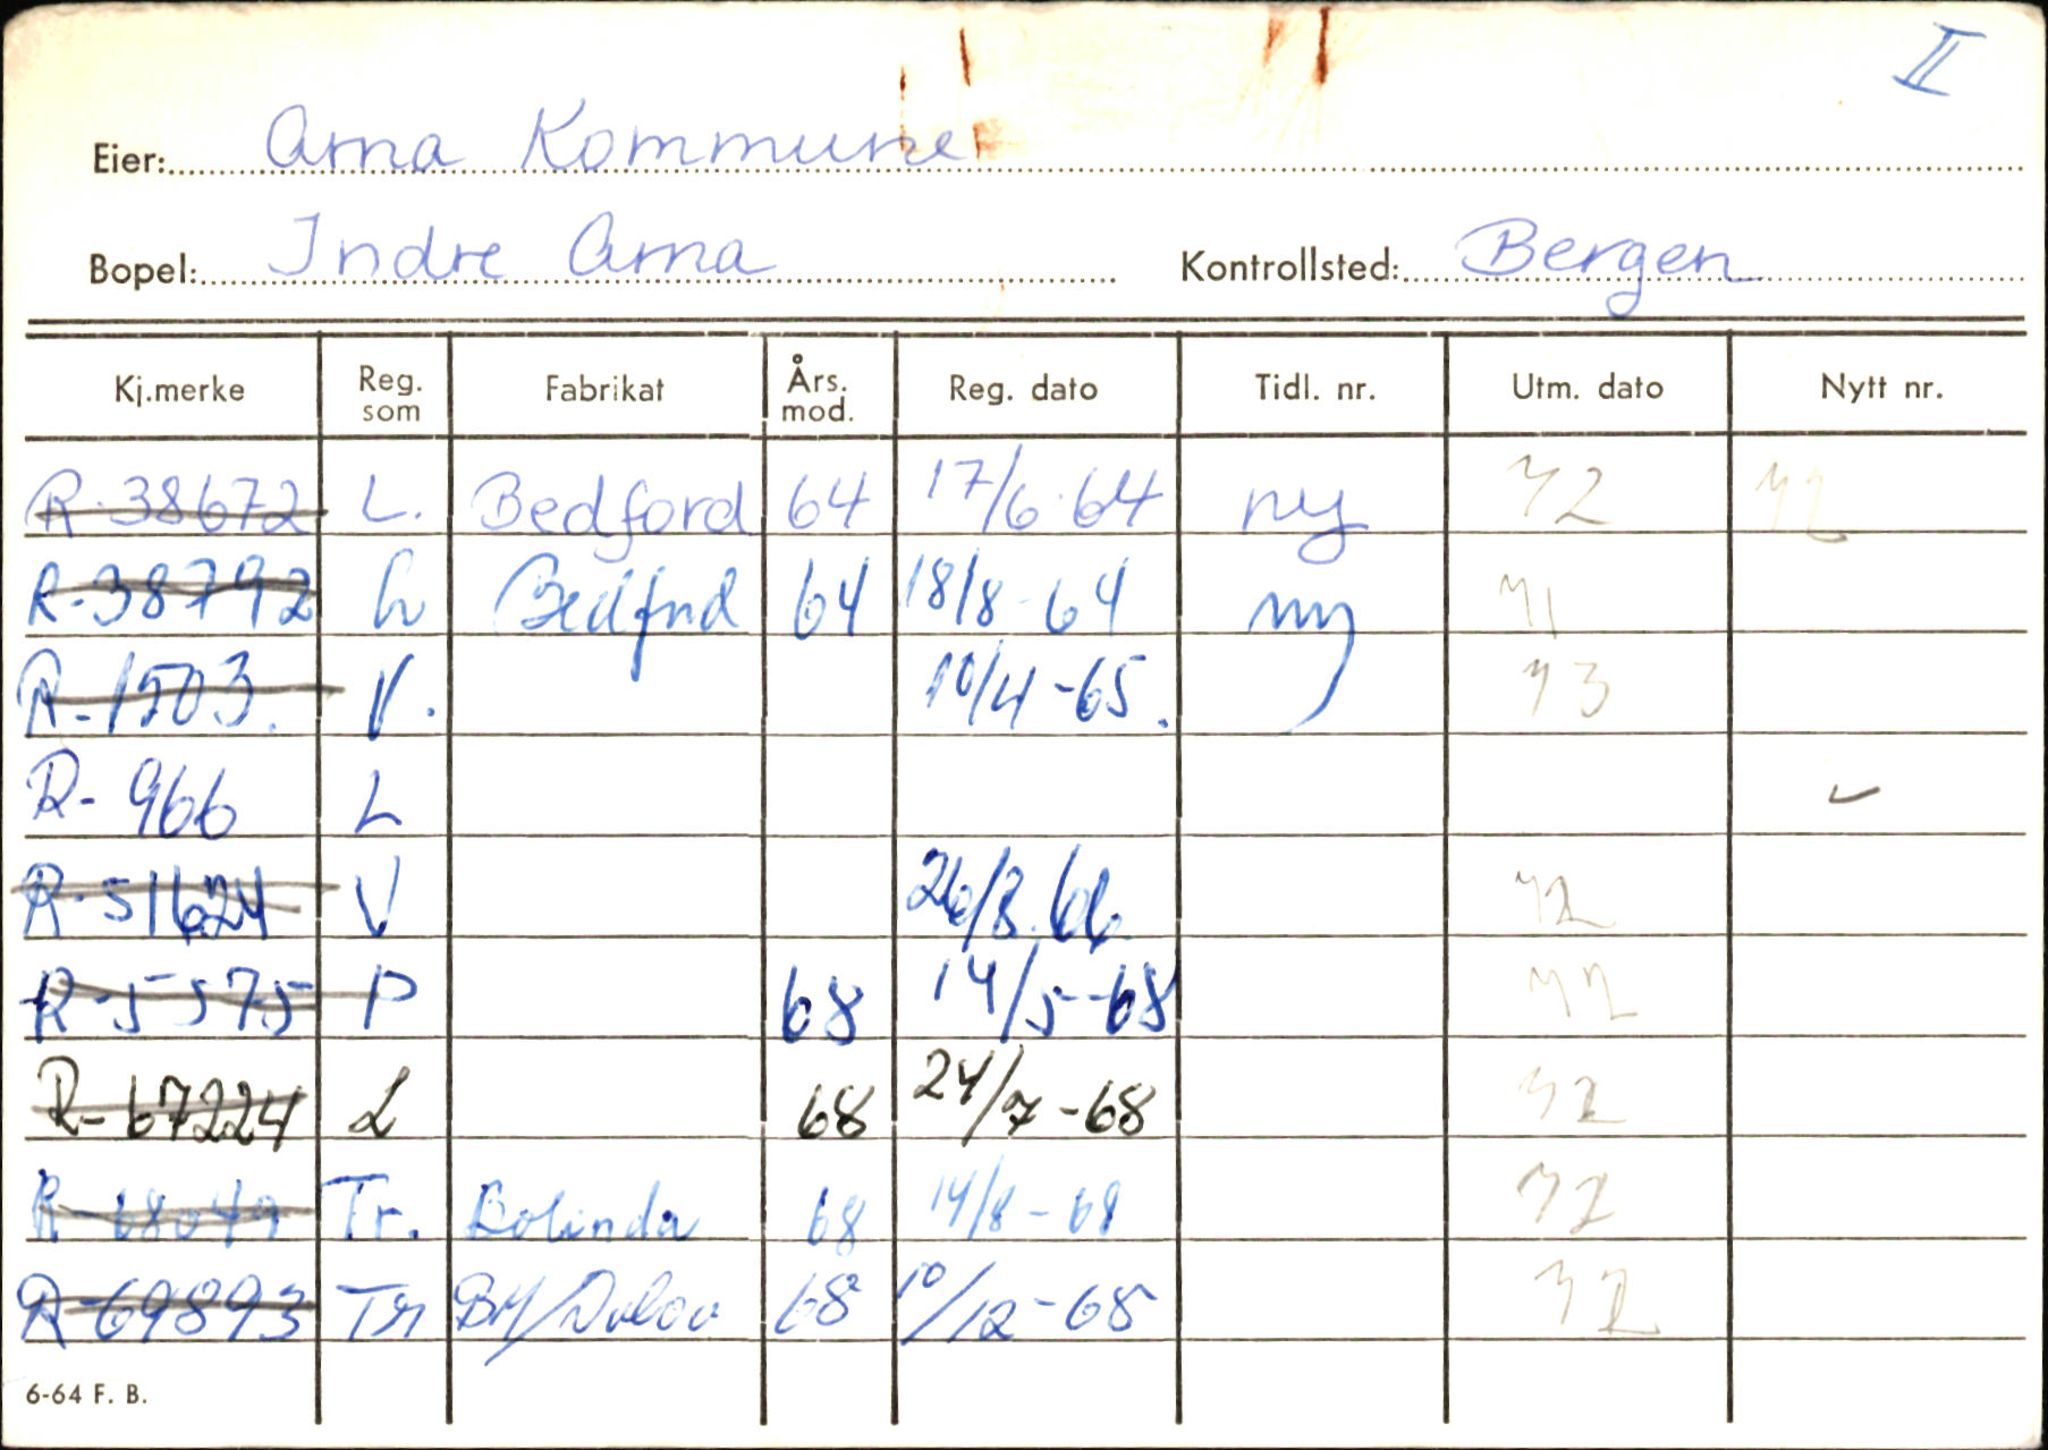 II
Eier: Arna Kommune
Bopel: Indre Arna Kontrollsted: Bergen
Kj.merke Reg. som Fabrikat Års. mod. Reg. dato Tidl. nr. Utm. dato Nytt nr.
R-38672 L. Bedford 64 17/6-64 ny 72 72
R-38792 L Bedford 64 18/8-64 ny 71
R-1503. V. 10/4-65. 73
R-966 L
R-51624 V 26/8.66 72
R-5575 P 68 14/5-68 72
R-67224 L 68 24/7-68 72
R-68049 Tr. Bolinda 68 14/8-68 72
R-69893 Tr BM/Volvo 68 10/12-68 72
6-64 F. B.